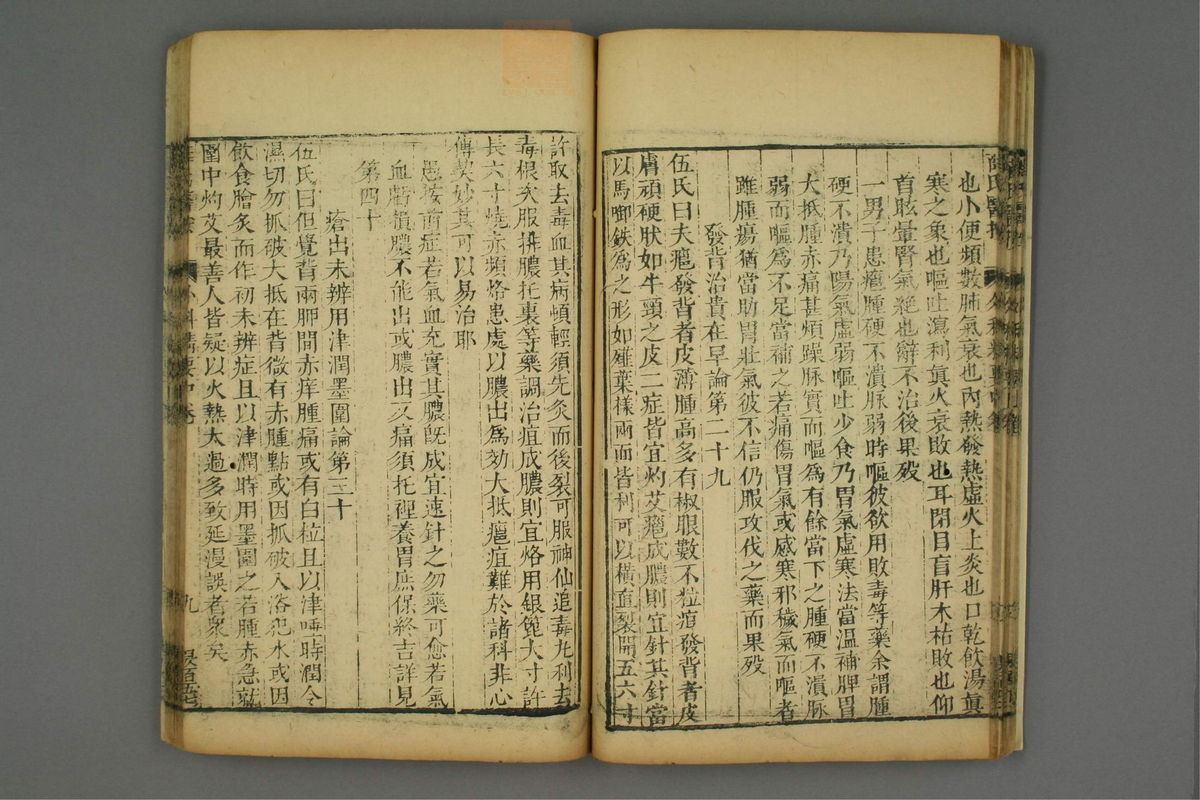 也小便頻數肺氣衰也內熱發熱虛火上炎也口乾飲湯眞
寒之象也嘔吐瀉利眞火衰敗也耳閉目盲肝木枯敗也仰
首眩暈腎氣絕也辭不治後果歿
一男子患癰腫硬不潰脉弱時嘔彼欲用敗毒等藥余謂腫
硬不潰乃陽氣虛弱嘔吐少食乃胃氣虛寒法當溫補脾胃
大抵腫赤痛甚煩躁脉實而嘔爲有餘當下之腫硬不潰脉
弱而嘔爲不足當補之若痛傷胃氣或感寒邪穢氣而嘔者
雖腫瘍猶當助胃壯氣彼不信仍服攻伐之藥而果歿
發背治貴在早論第二十九
伍氏曰夫癰發背者皮薄腫高多有椒眼數不粒疽發背者皮
膚頑硬狀如牛頸之皮二症皆宜灼艾癰成膿則宜針其針當
以馬啣鉄爲之形如薤葉樣兩面皆利可以橫直裂開五六寸
許取去毒血其病頓輕須先灸而後裂可服神仙追毒丸利去
毒根次服排膿托裏等藥調治疽成膿則宜烙用銀篦大寸許
長六寸燒赤頻烙患處以膿出爲効大抵癰疽難於諸科非心
傳契妙其可以易治耶
愚按前症若氣血充實其膿旣成宜速針之勿藥可愈若氣
血虧損膿不能出或膿出又痛須托裡養胃庶保終吉詳見
第四十
瘡出未辨用津潤墨圍論第三十
伍氏曰但覺背兩胛間赤痒腫痛或有白粒且以津唾時潤令
濕切勿抓破大抵在背微有赤腫點或因抓破入浴犯水或因
飲食膾炙而作初未辨症且以津潤時用墨圍之若腫赤急就
圍中灼艾最善人皆疑以火熱太過多致延漫誤者衆矣